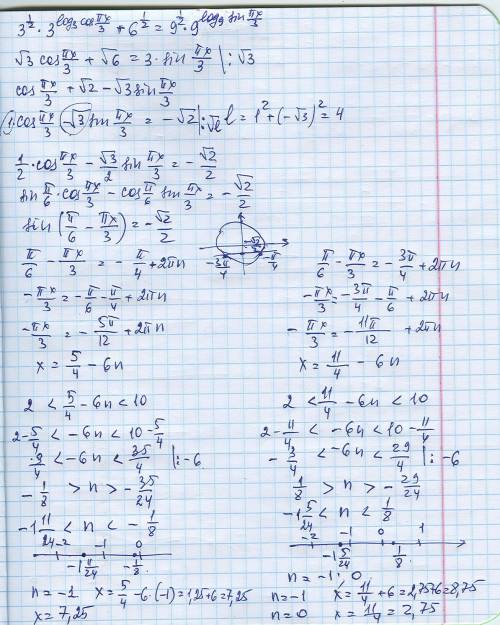 3^{1/2} · 3^{log₃ cos πx/3} + 6^{1/2} = 9^{1/2} · 9^{log₉ sin πx/3}
√3 cos πx/3 + √6 = 3 · sin πx/3 |: √3
cos πx/3 + √2 - √3 sin πx/3
1·cos πx/3 - √3 sin πx/3 = -√2 |:√l l = 1² + (-√3)² = 4
1/2 · cos πx/3 - √3/2 sin πx/3 = - √2/2
sin π/6 · cos πx/3 - cos π/6 sin πx/3 = - √2/2
sin (π/6 - πx/3) = - √2/2
-√2/2
-3π/4 -π/4
π/6 - πx/3 = - π/4 + 2πn
- πx/3 = - π/6 - π/4 + 2πn
- πx/3 = - 5π/12 + 2πn
x = 5/4 - 6n
2 < 5/4 - 6n < 10
2 - 5/4 < -6n < 10 - 5/4
3/4 < -6n < 35/4 |: -6
- 1/8 > n > - 35/24
-1 11/24 < n < - 1/8
-2 -1 0
-1 11/24 -1/8
n = -1 x = 5/4 - 6·(-1) = 1,25+6 = 7,25
x = 7,25
π/6 - πx/3 = - 3π/4 + 2πn
- πx/3 = - 3π/4 - π/6 + 2πn
- πx/3 = - 11π/12 + 2πn
x = 11/4 - 6n
2 < 11/4 - 6n < 10
2 - 11/4 < -6n < 10 - 11/4
- 3/4 < -6n < 29/4 |: -6
1/8 > n > - 29/24
-1 5/24 < n < 1/8
-2 -1 0 1
-1 5/24 1/8
n = -1; 0
n = -1 x = 11/4 + 6 = 2,75+6 = 8,75
n = 0 x = 11/4 = 2,75